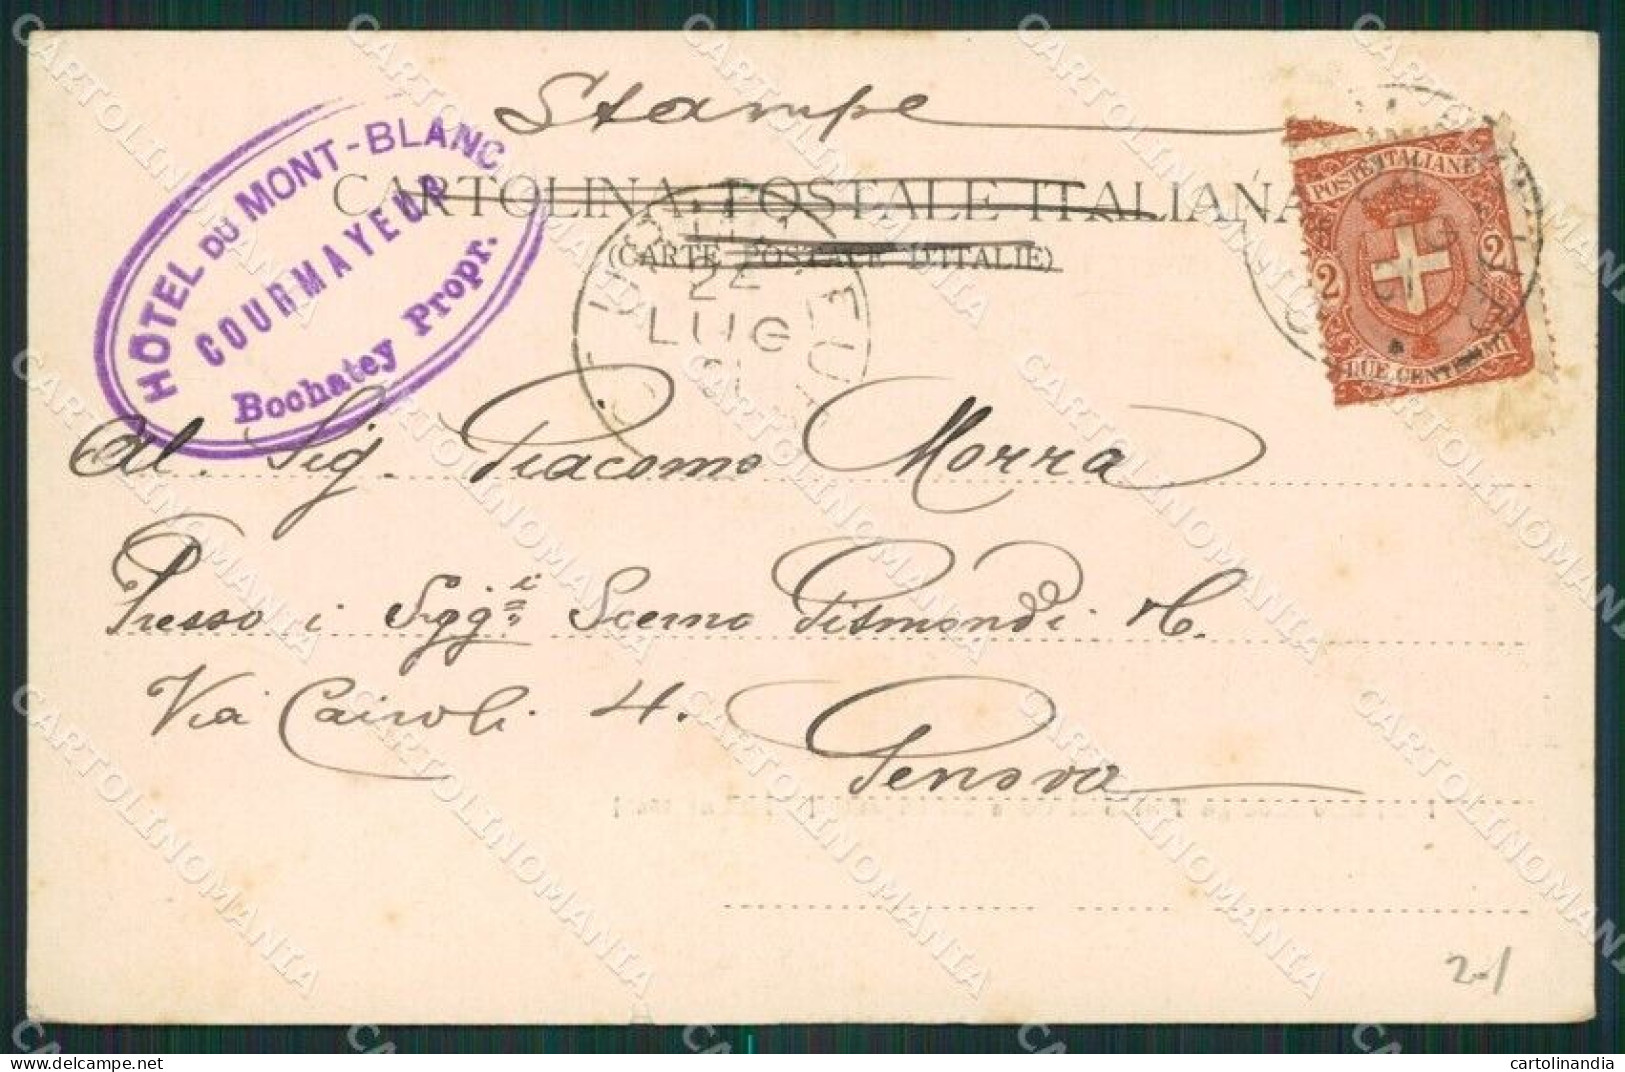 Stampe
HÔTEL DU MONT-BLANC
COURMAYEUR
Bochatey Propr.
CARTOLINA POSTALE ITALIANA
(CARTE POSTALE D'ITALIE)
POSTE ITALIANE
2 2
DUE CENTESIMI
22
LUG
Al Sig. Giacomo Morra
Presso i Sigg.ri Scerno Gismondi & C.
Via Cairoli 4.
Genova
2-/
CARTOLINOMANIA
cartolinandia
delcampe.net